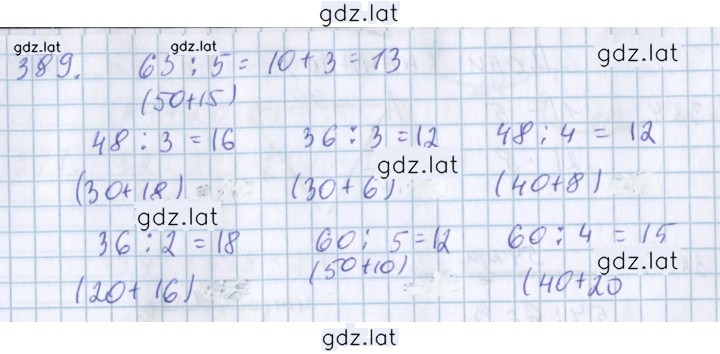 gdz.lat
gdz.lat gdz.lat gdz.lat
389. 65 : 5 = 10 + 3 = 13
(50+15)
48 : 3 = 16 36 : 3 = 12 48 : 4 = 12
gdz.lat
(30+18) (30+6) (40+8) gdz.lat
gdz.lat
36 : 2 = 18 60 : 5 = 12 60 : 4 = 15
(50+10) gdz.lat
(20+16) (40+20
gdz.lat